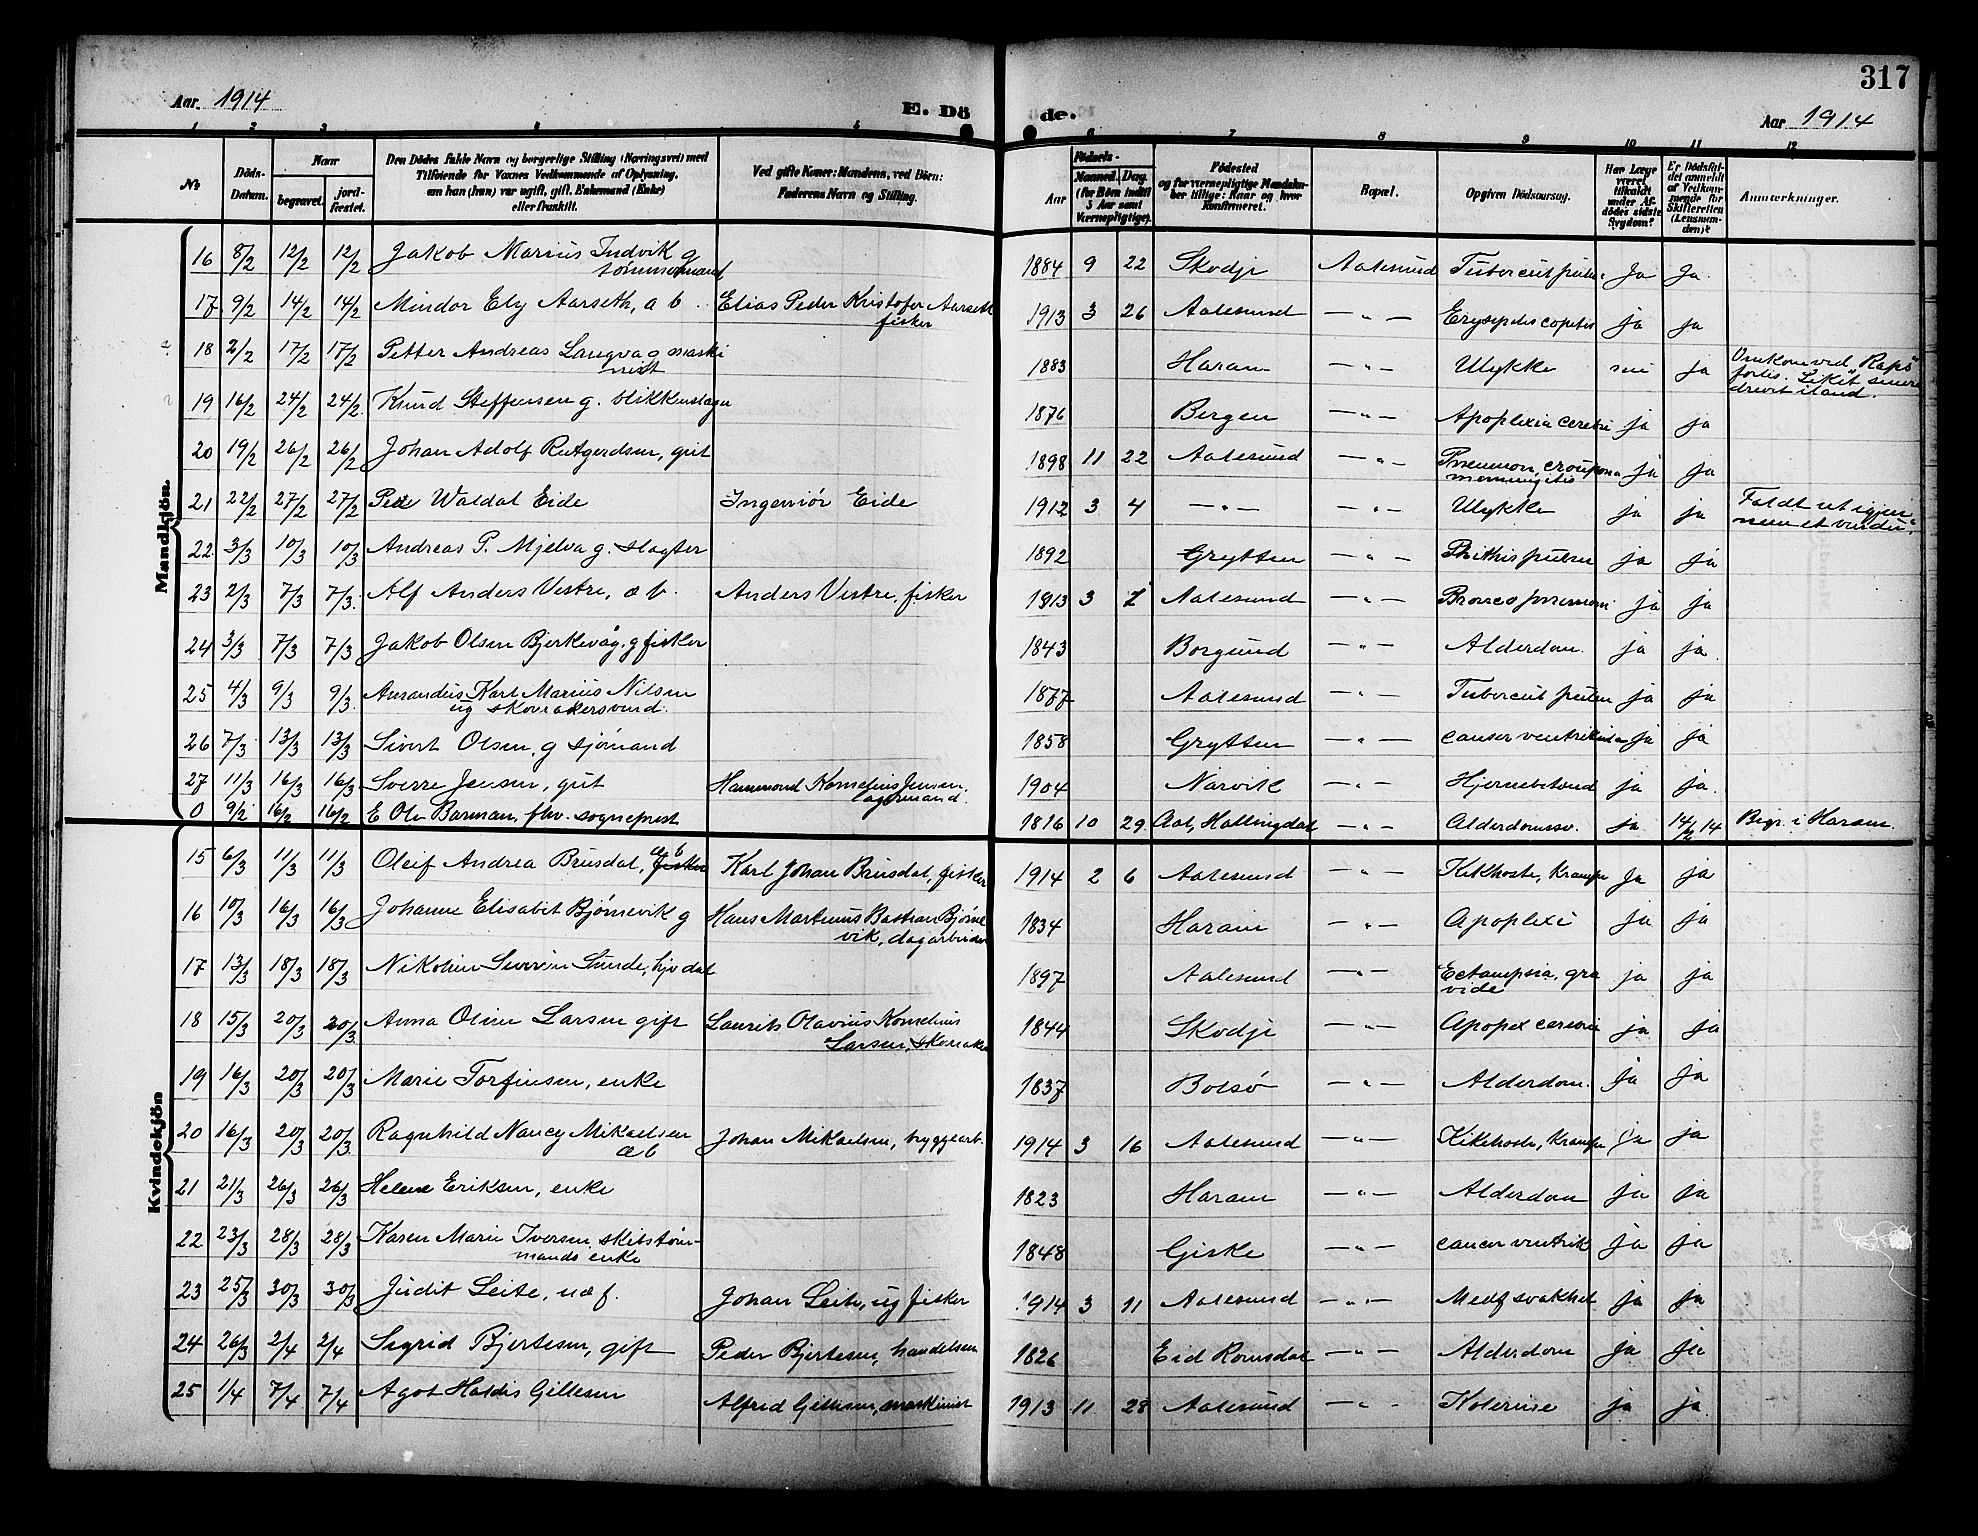 317
Aar. 1914
E. Dö
de.
Aar 1914
No
Döds-Datum.
Naar
begravet.
jord-fæstet.
Den Dödes fulde Navn og borgerlige Stilling (Næringsvei) med
Tilföiende for Voxnes Vedkommende af Oplysning,
om han (hun) var ugift, gift, Enkemand (Enke)
eller fraskilt.
Ved gifte Koner: Mandens, ved Börn:
Faderens Navn og Stilling.
Aar
Födsels-
Maaned. Dag.
(for Börn indtil
5 Aar samt
Værnepligtige).
Födested
og for værnepligtige Mandska-
ber tillige: Naar og hvor
konfirmeret.
Bopæl.
Opgiven Dödsaarsag.
Har Læge
været
tilkaldt
under Af-
dödes sidste
Sygdom?
Er Dödsfal-
det anmeldt
af Vedkom-
mende for
Skifteretten
(Lensman-
den)?
Anmærkninger.
Mandkjön.
16 8/2 12/2 12/2 Jakob Marius Indvik g tømmermand 1884 9 22 Skodje Aalesund Tubercul pulm. Ja Ja
17 9/2 14/2 14/2 Mindor Ely Aarseth, æ b. Elias Peder Kristofer Aarseth fisker 1913 3 26 Aalesund — " — Erysepelas capitis ja ja
18 2/2 17/2 17/2 Petter Andreas Langva g maskinist 1883 Haram — " — Ulykke nei ja Omkom ved "Raps" forlis. Liket senere drevet iland.
19 16/2 24/2 24/2 Knud Steffensen g. blikkenslager 1876 Bergen — " — Apoplexia cerebri ja ja
20 19/2 26/2 26/2 Johan Adolf Rutgerdsen, gut 1898 11 22 Aalesund — " — Pneumon, crouposa menningitis ja ja
21 22/2 27/2 27/2 Peder Waldal Eide Ingeniør Eide 1912 3 4 — " — — " — Ulykke ja ja Faldt ut igjennem et vindu.
22 3/3 10/3 10/3 Andreas P. Mjelva g. slagter 1892 Grytten — " — Phithis pulm ja ja
23 2/3 7/3 7/3. Alf Anders Vestre, æ b. Anders Vestre, fisker 1913 3 7 Aalesund — " — Bronco pneumoni ja ja
24 3/3 7/3 7/3 Jakob Olsen Bjerkevåg. g fisker 1843 Borgund — " — Alderdom. ja ja.
25 4/3 9/3 9/3. Amandus Karl Marius Nilsen ug skomakersvend. 1877 Aalesund — " — Tubercul pulm ja ja
26 7/3 13/3 13/3 Sivert Olsen, g sjømand 1858 Grytten — " — cancer ventrikul ja ja
27 11/3 16/3 16/3 Sverre Jensen, gut Hammond Kornelius Jensen, lagermand. 1904 Narvik — " — Hjernebetænd ja ja.
0 9/2 16/2 16/2 E Ole Barman, fhv. sogneprest 1816 10 29 Aal, Hallingdal — " — Alderdomssv. ja 14/2 14 Begr. i Haram.
Kvindekjön
15 6/3 11/3 11/3 Oleif Andrea Brusdal, æ b Karl Johan Brusdal, fisker 1914 2 6 Aalesund — " — Kikhoste, Krampe Ja ja
16 10/3 16/3 16/3 Johanne Elisabet Bjørnevik g Hans Martinus Bastian Bjørnevik, dagarbeider 1834 Haram — " — Apoplexi ja ja
17 13/3 18/3 18/3 Nikoline Severin Sunde, hjv dat 1897 Aalesund — " — Eclampsia, gravide ja ja
18 15/3 20/3 20/3 Anna Oline Larsen gift Laurits Olavius Kornelius Larsen, skomaker 1844 Skodje — " — Apopex cerebri ja ja
19 16/3 20/3 20/3 Marie Torfinsen, enke 1837 Bolsø — " — Alderdom. ja ja
20 16/3 20/3 20/3 Ragnhild Nancy Mikaelsen æ b Johan Mikaelsen, bryggearb. 1914 3 16 Aalesund — " — Kikhoste, Krampe ja ja
21 21/3 26/3 26/3 Helene Eriksen, enke 1823 Haram — " — Alderdom ja ja
22 23/3 28/3 28/3 Karen Marie Iversen skibstømmands enke 1848 Giske — " — cancer ventrik ja ja
23 25/3 30/3 30/3 Judit Leite, u æ f. Johan Leite, ug fisker 1914 3 11 Aalesund — " — Medf svakhet ja ja
24 26/3 2/4 2/4 Sigrid Bjertesen, gift Peder Bjertesen, handelsm 1826 Eid Romsdal — " — Alderdom ja ja
25 1/4 7/4 7/4 Agot Haldis Gillesen Alfred Gillesen, maskinist 1913 11 28 Aalesund — " — Kolerine ja ja.